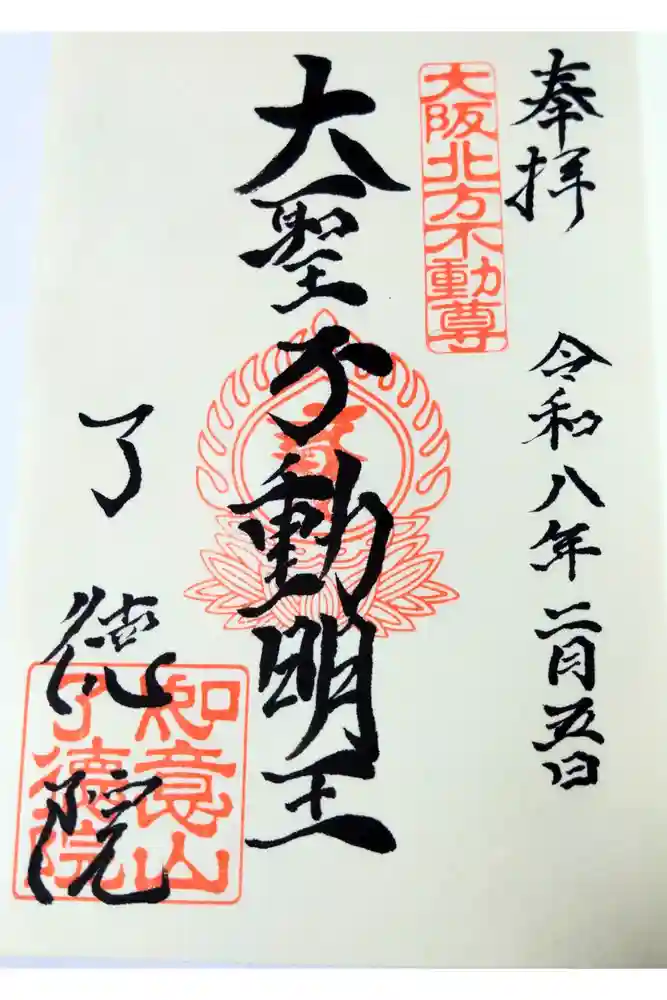 奉拝
令和八年二月五日
大阪北方不動尊
大聖不動明王
了徳院
如意山
了德院